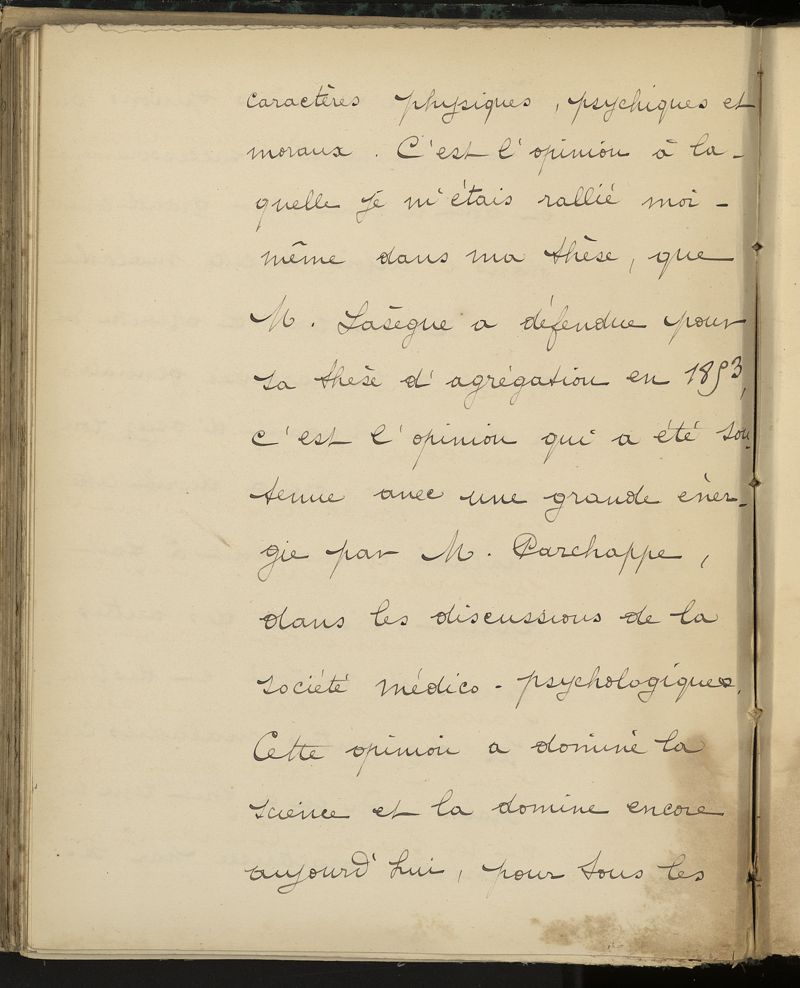 caractères physiques, psychiques et
moraux. C'est l'opinion à la-
quelle je m'étais rallié moi-
même dans ma thèse, que
M. Lasègue a défendue pour
sa thèse d'agrégation en 1853,
c'est l'opinion qui a été sou-
tenue avec une grande éner-
gie par M. Parchappe,
dans les discussions de la
société médico-psychologique.
Cette opinion a dominé la
science et la domine encore
aujourd'hui, pour tous les